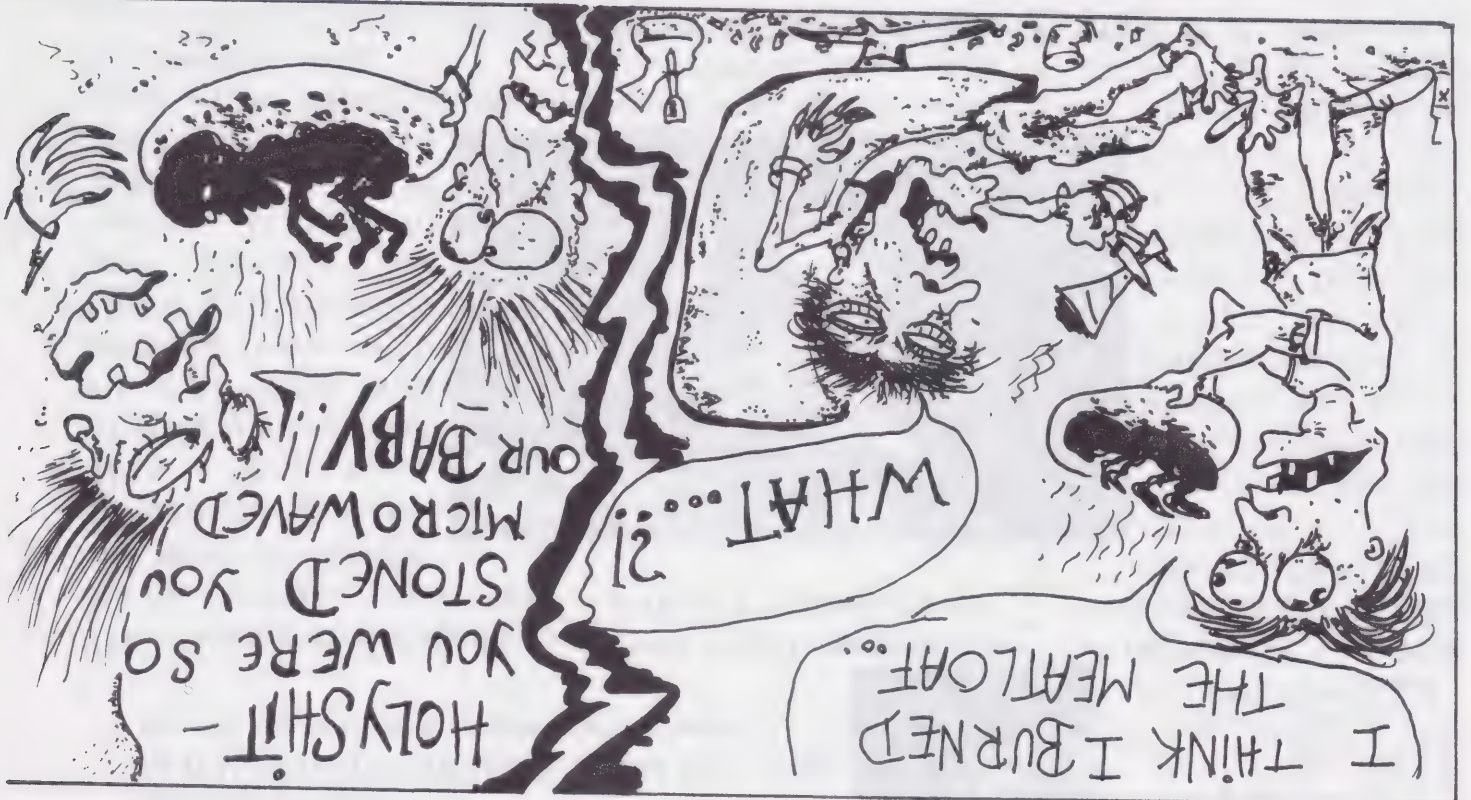 I
THINK I BURNED
THE MEATLOAF...
WHAT....?!
HOLY SHIT -
YOU WERE SO
STONED YOU
MICROWAVED
OUR BABY!!